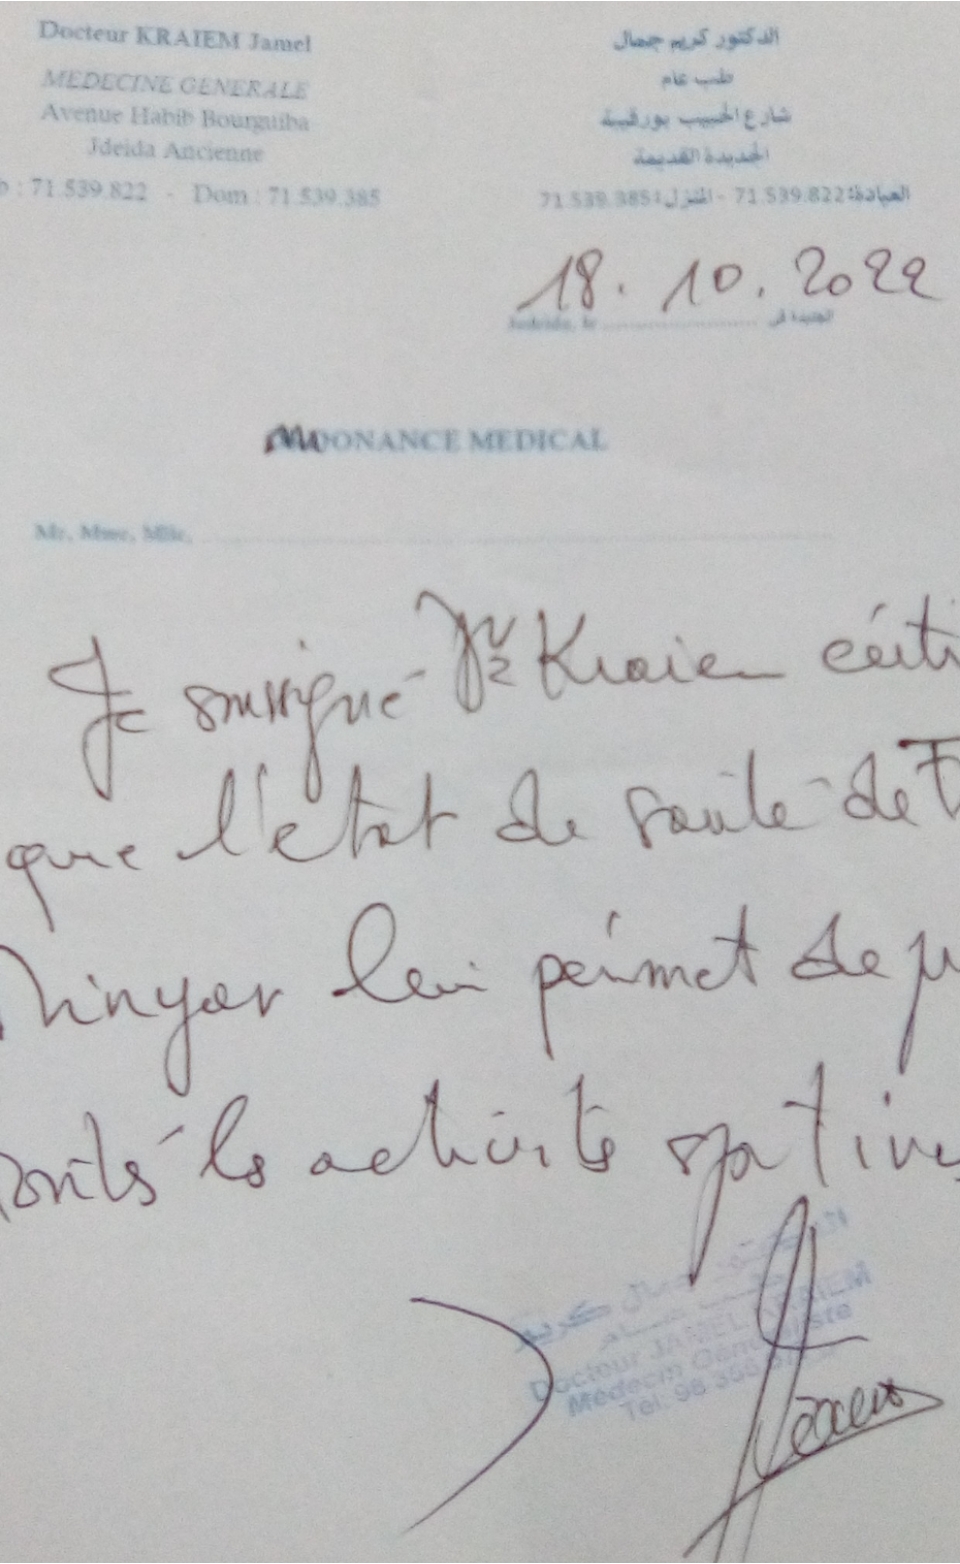 Docteur KRAIEM Jamel
MEDECINE GENERALE
Avenue Habib Bourguiba
Jdeida Ancienne
: 71.539.822 - Dom : 71.539.385
الدكتور كريم جمال
طب عام
شارع الحبيب بورقيبة
الجديدة القديمة
العيادة: 71.539.822 - المنزل: 71.539.385
18. 10. 2022
Jedeida, le الجديدة في
DONANCE MEDICAL
Mr, Mme, Mlle,
Je soussigné Dr Kraiem certi
que l'état de santé de
Minyar lui permet de
les activités sportives
الدكتور جمال كريم
طب عام
Docteur JAMEL KRAIEM
Médecin Généraliste
Tel: 98 366